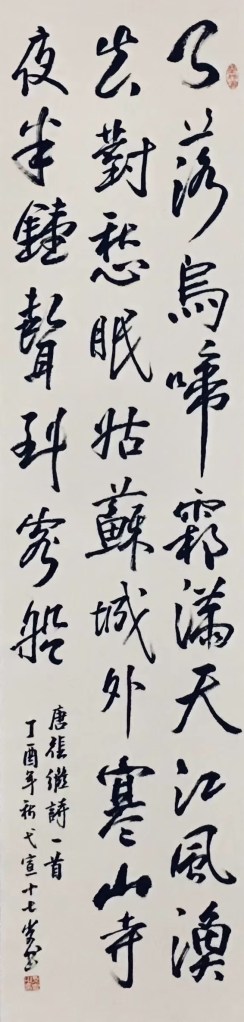 月落烏啼霜滿天江風漁
火對愁眠姑蘇城外寒山寺
夜半鐘聲到客船
唐張繼詩一首
丁酉年弋宣十七岁书